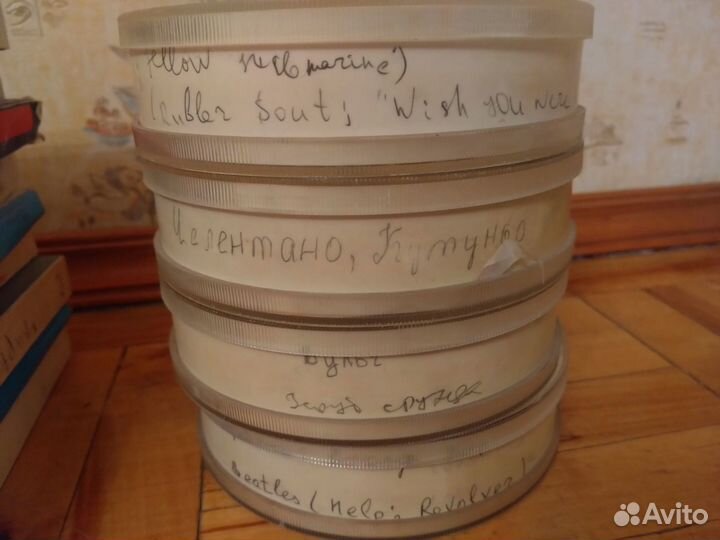 Yellow submarine")
(Rubber Sout; "Wish you were
Челентано, Кутуньо
Beatles (Help; Revolver)
Avito